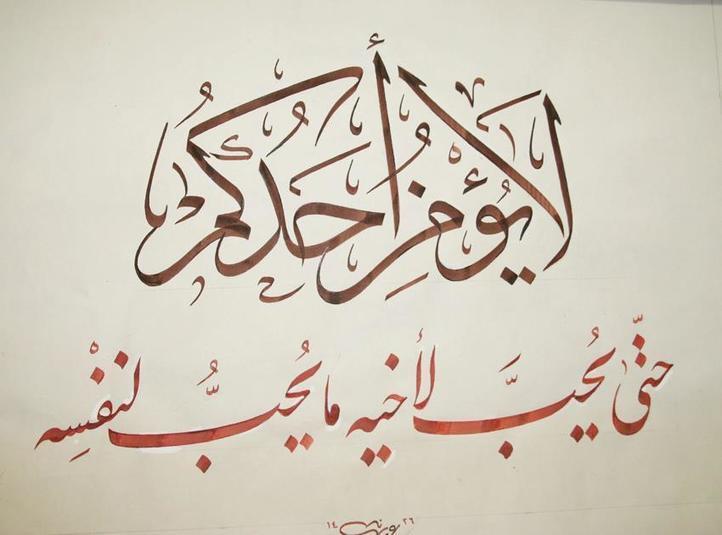 لا يُؤْمِنُ أَحَدُكُمْ
حتّى يُحِبَّ لأخيه ما يُحِبُّ لنفْسِه
١٤٢٦